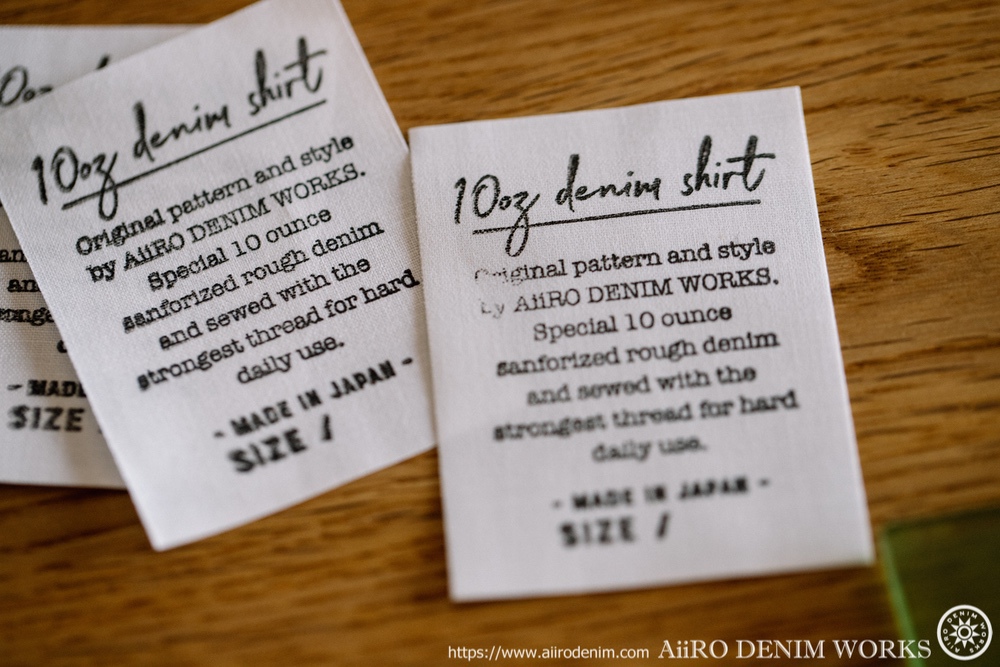 10oz denim shirt
Original pattern and style
by AiiRO DENIM WORKS.
Special 10 ounce
sanforized rough denim
and sewed with the
strongest thread for hard
daily use.
- MADE IN JAPAN -
SIZE /
10oz denim shirt
Original pattern and style
by AiiRO DENIM WORKS.
Special 10 ounce
sanforized rough denim
and sewed with the
strongest thread for hard
daily use.
- MADE IN JAPAN -
SIZE /
- MADE
SIZE
https://www.aiirodenim.com AiiRO DENIM WORKS